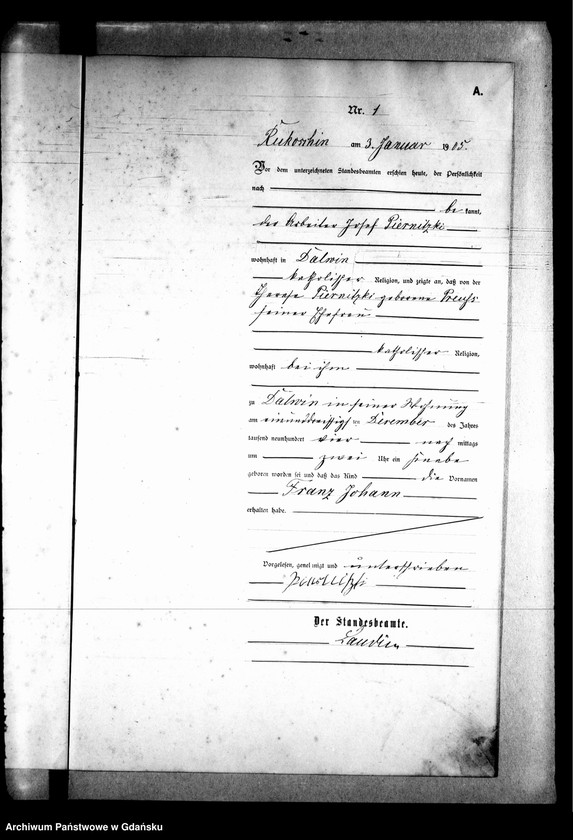 A.
Nr. 1
Rukoschin am 3. Januar 1905.
Vor dem unterzeichneten Standesbeamten erschien heute, der Persönlichkeit
nach
be kannt,
der Arbeiter Josef Piernitzki
wohnhaft in Dalwin
katholischer Religion, und zeigte an, daß von der
Therese Piernitzki geborene Preuß
seiner Ehefrau
katholischer Religion,
wohnhaft bei ihm
zu Dalwin in seiner Wohnung
am einunddreißigsten Dezember des Jahres
tausend neunhundert vier nach mittags
um zwei Uhr ein Knabe
geboren worden sei und daß das Kind die Vornamen
Franz Johann
erhalten habe.
Vorgelesen, genehmigt und unterschrieben
Der Standesbeamte.
Archiwum Państwowe w Gdańsku